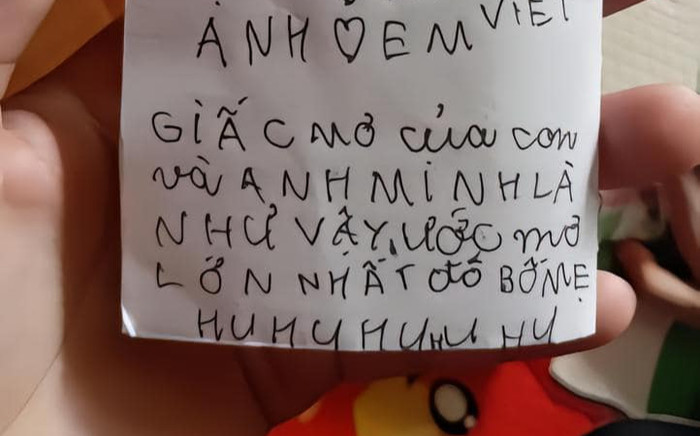 ANH ♡ EM VIẾT
GIẤC MƠ của con
và ANH MINH LÀ
NHƯ VẬY, ƯỚC mơ
LỚN NHẤT đó BỐ MẸ
HU HU HU HU HU